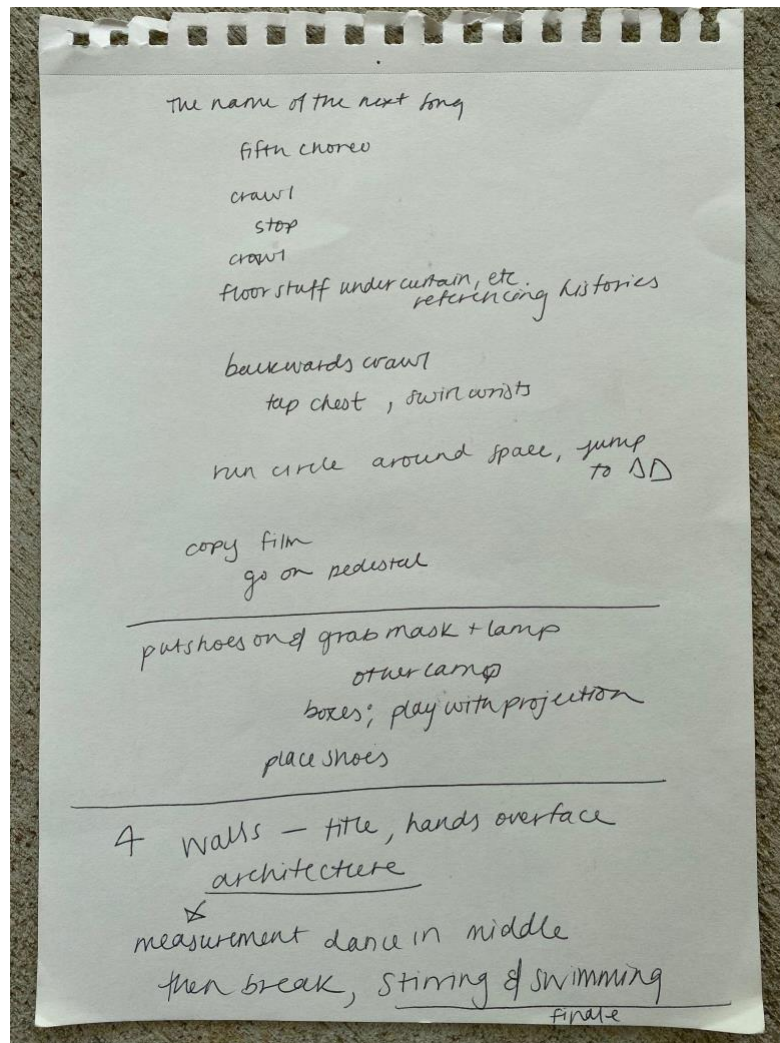 The name of the next song
fifth choreo
crawl
stop
crawl
floor stuff under curtain, etc.
referencing histories
backwards crawl
tap chest, swirl wrists
run circle around space, jump
to
copy film
go on pedestal
put shoes on & grab mask + lamp
other lamp
boxes; play with projection
place shoes
4 walls — title, hands over face
architecture
measurement dance in middle
then break, stirring & swimming
finale